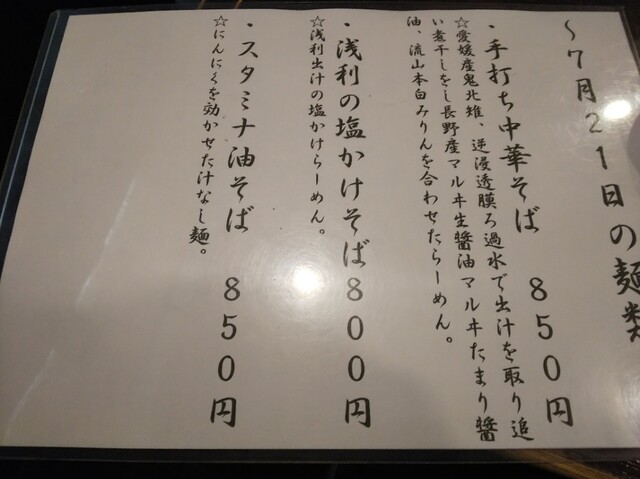 ～7月21日の麺類
・手打ち中華そば 850円
☆愛媛産鬼北雉、逆浸透膜ろ過水で出汁を取り追
い煮干しをし長野産マルヰ生醤油マルヰたまり醤
油、流山本白みりんを合わせたらーめん。
・浅利の塩かけそば800円
☆浅利出汁の塩かけらーめん。
・スタミナ油そば 850円
☆にんにくを効かせた汁なし麺。